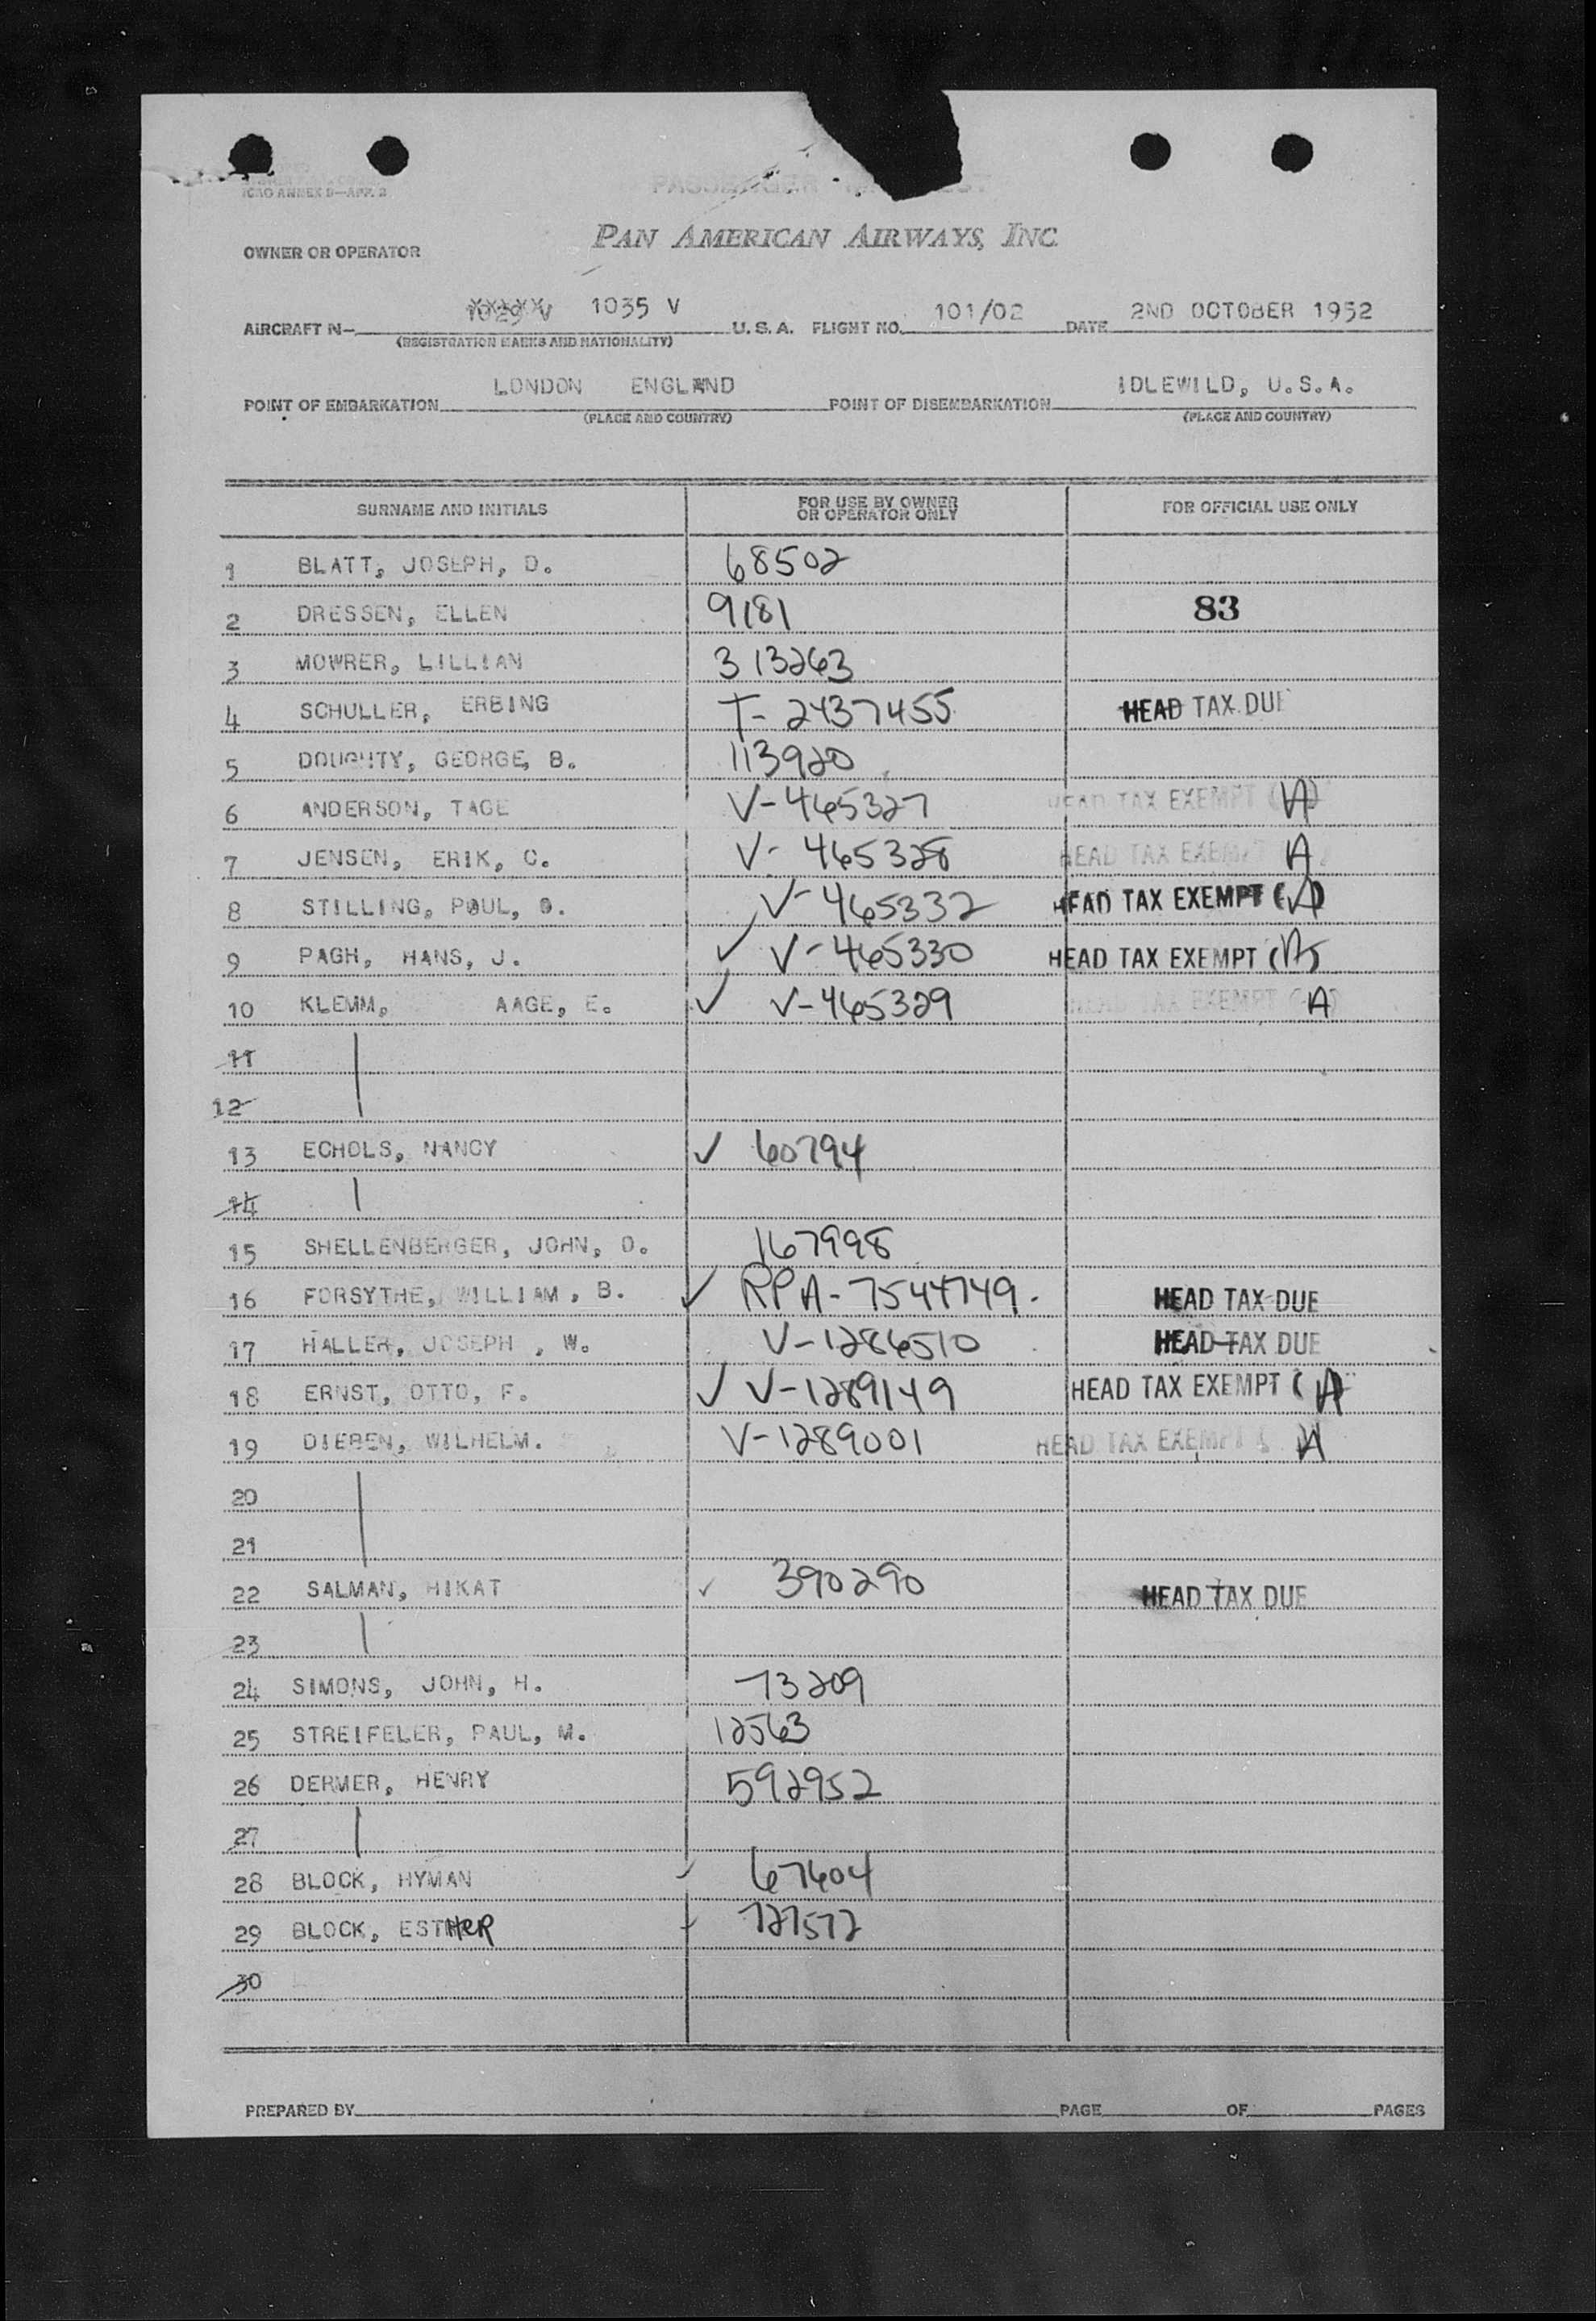 ICAO ANNEX 9—APP. 2
PASSENGER
PAN AMERICAN AIRWAYS, INC.
OWNER OR OPERATOR
AIRCRAFT N— 1029 V 1035 V U. S. A. FLIGHT NO. 101/02 DATE 2ND OCTOBER 1952
(REGISTRATION MARKS AND NATIONALITY)
POINT OF EMBARKATION LONDON ENGLAND POINT OF DISEMBARKATION IDLEWILD, U.S.A.
(PLACE AND COUNTRY) (PLACE AND COUNTRY)
SURNAME AND INITIALS FOR USE BY OWNER OR OPERATOR ONLY FOR OFFICIAL USE ONLY
1 BLATT, JOSEPH, D. 68502
2 DRESSEN, ELLEN 9181 83
3 MOWRER, LILLIAN 313263
4 SCHULLER, ERBING T-2437455 HEAD TAX DUE
5 DOUGHTY, GEORGE, B. 113920
6 ANDERSON, TAGE V-465327 HEAD TAX EXEMPT (A)
7 JENSEN, ERIK, C. V-465328 HEAD TAX EXEMPT A
8 STILLING, POUL, O. V-465332 HEAD TAX EXEMPT (A)
9 PAGH, HANS, J. ✓ V-465330 HEAD TAX EXEMPT (A)
10 KLEMM, AAGE, E. ✓ V-465329 HEAD TAX EXEMPT (A)
11
12
13 ECHOLS, NANCY ✓ 60794
14
15 SHELLENBERGER, JOHN, O. 167998
16 FORSYTHE, WILLIAM, B. ✓ RPA-7544749. HEAD TAX DUE
17 HALLER, JOSEPH, W. V-1286510 HEAD TAX DUE
18 ERNST, OTTO, F. ✓ V-1289149 HEAD TAX EXEMPT (A)
19 DIEBEN, WILHELM. V-1289001 HEAD TAX EXEMPT ( A
20
21
22 SALMAN, HIKAT ✓ 390290 HEAD TAX DUE
23
24 SIMONS, JOHN, H. 73209
25 STREIFELER, PAUL, M. 12563
26 DERMER, HENRY 592952
27
28 BLOCK, HYMAN ✓ 67604
29 BLOCK, ESTHER ✓ 727572
30
PREPARED BY PAGE OF PAGES